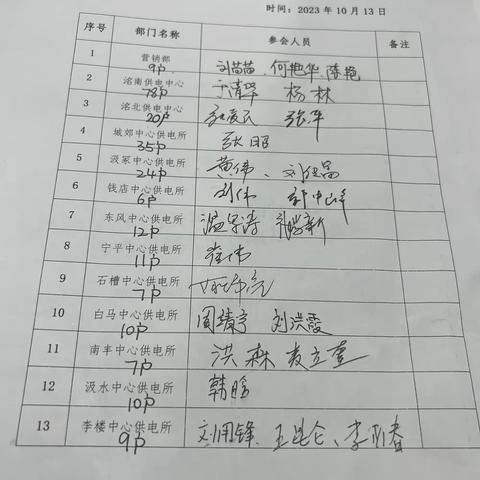 时间：2023 年 10 月 13 日
序号 部门名称 参会人员 备注
1 营销部 刘苗苗、何艳华、陈艳
9户
2 洺南供电中心 于清华 杨林
78户
3 洺北供电中心 张华
20户
4 城郊中心供电所 张昭
35户
5 汲冢中心供电所 黄伟、刘
24户
6 钱店中心供电所 刘伟
6户
7 东风中心供电所
12户
8 宁平中心供电所 崔伟
11户
9 石槽中心供电所
7户
10 白马中心供电所 周靖宇 刘洪霞
10户
11 南丰中心供电所 洪森 麦立奎
7户
12 汲水中心供电所 韩晗
10户
13 李楼中心供电所 刘用锋、王昆仑、李
9户